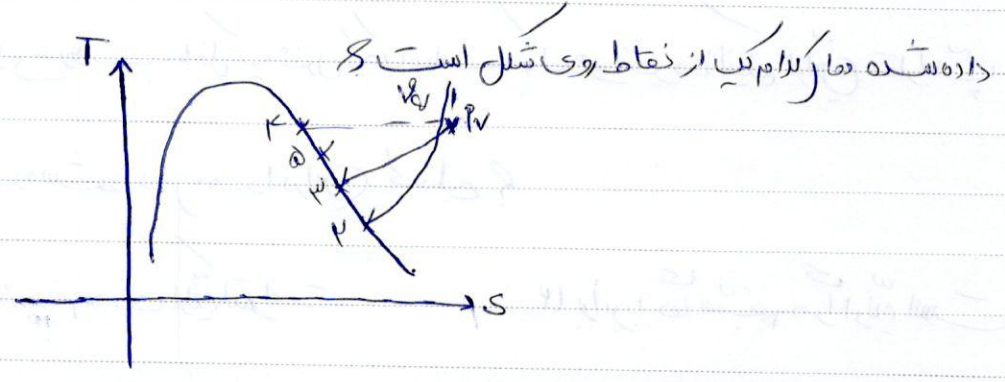 داده شده دمای کدام یک از نقاط روی شکل است ؟
T
۴
۵
۳
۲
S